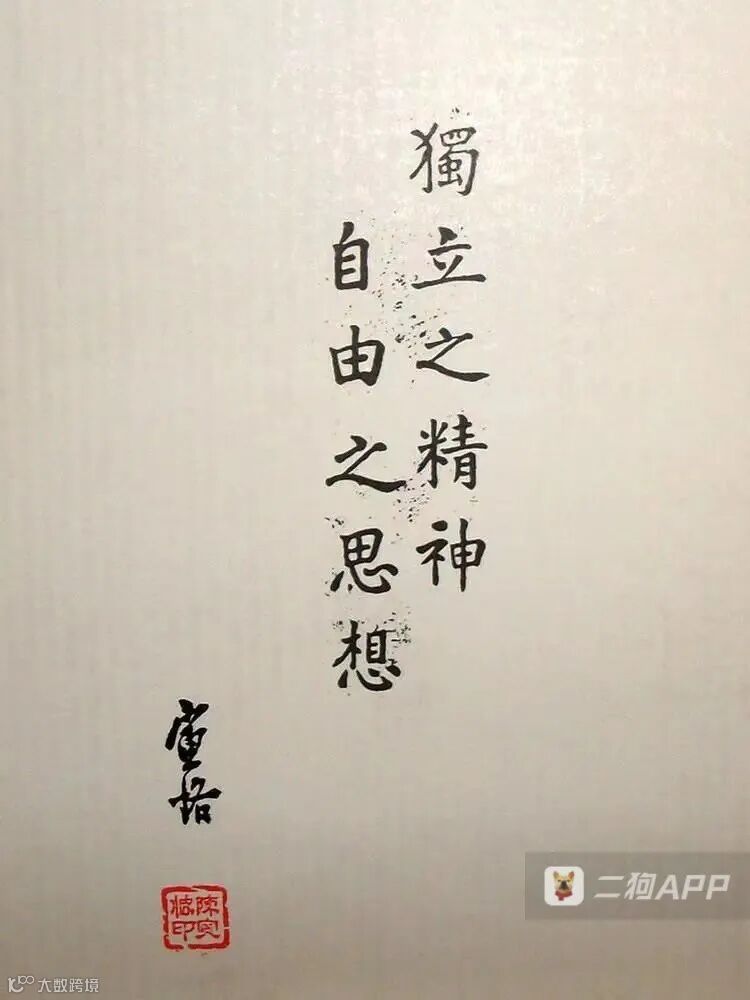 獨立之精神
自由之思想
寅恪
陳寅恪印
二狗APP
大数跨境